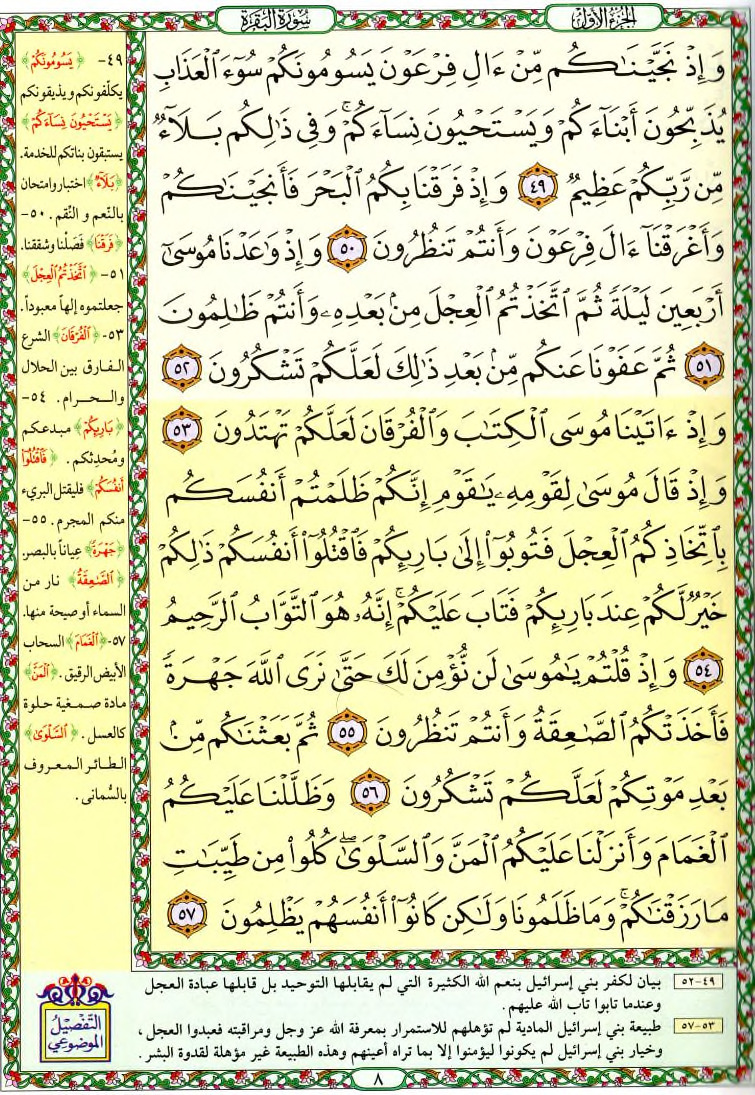 الجزء الأول
سورة البقرة
وَإِذْ نَجَّيْنَٰكُم مِّنْ ءَالِ فِرْعَوْنَ يَسُومُونَكُمْ سُوٓءَ ٱلْعَذَابِ
يُذَبِّحُونَ أَبْنَآءَكُمْ وَيَسْتَحْيُونَ نِسَآءَكُمْ ۚ وَفِى ذَٰلِكُم بَلَآءٌ
مِّن رَّبِّكُمْ عَظِيمٌ ٤٩ وَإِذْ فَرَقْنَا بِكُمُ ٱلْبَحْرَ فَأَنجَيْنَٰكُمْ
وَأَغْرَقْنَآ ءَالَ فِرْعَوْنَ وَأَنتُمْ تَنظُرُونَ ٥٠ وَإِذْ وَٰعَدْنَا مُوسَىٰٓ
أَرْبَعِينَ لَيْلَةً ثُمَّ ٱتَّخَذْتُمُ ٱلْعِجْلَ مِنۢ بَعْدِهِۦ وَأَنتُمْ ظَٰلِمُونَ
٥١ ثُمَّ عَفَوْنَا عَنكُم مِّنۢ بَعْدِ ذَٰلِكَ لَعَلَّكُمْ تَشْكُرُونَ ٥٢
وَإِذْ ءَاتَيْنَا مُوسَى ٱلْكِتَٰبَ وَٱلْفُرْقَانَ لَعَلَّكُمْ تَهْتَدُونَ ٥٣
وَإِذْ قَالَ مُوسَىٰ لِقَوْمِهِۦ يَٰقَوْمِ إِنَّكُمْ ظَلَمْتُمْ أَنفُسَكُم
بِٱتِّخَاذِكُمُ ٱلْعِجْلَ فَتُوبُوٓا۟ إِلَىٰ بَارِئِكُمْ فَٱقْتُلُوٓا۟ أَنفُسَكُمْ ذَٰلِكُمْ
خَيْرٌ لَّكُمْ عِندَ بَارِئِكُمْ فَتَابَ عَلَيْكُمْ ۚ إِنَّهُۥ هُوَ ٱلتَّوَّابُ ٱلرَّحِيمُ
٥٤ وَإِذْ قُلْتُمْ يَٰمُوسَىٰ لَن نُّؤْمِنَ لَكَ حَتَّىٰ نَرَى ٱللَّهَ جَهْرَةً
فَأَخَذَتْكُمُ ٱلصَّٰعِقَةُ وَأَنتُمْ تَنظُرُونَ ٥٥ ثُمَّ بَعَثْنَٰكُم مِّنۢ
بَعْدِ مَوْتِكُمْ لَعَلَّكُمْ تَشْكُرُونَ ٥٦ وَظَلَّلْنَا عَلَيْكُمُ
ٱلْغَمَامَ وَأَنزَلْنَا عَلَيْكُمُ ٱلْمَنَّ وَٱلسَّلْوَىٰ ۖ كُلُوا۟ مِن طَيِّبَٰتِ
مَا رَزَقْنَٰكُمْ ۚ وَمَا ظَلَمُونَا وَلَٰكِن كَانُوٓا۟ أَنفُسَهُمْ يَظْلِمُونَ ٥٧
٤٩- ﴿يَسُومُونَكُمْ﴾
يكلّفونكم ويذيقونكم
﴿يَسْتَحْيُونَ نِسَآءَكُمْ﴾
يستبقون بناتكم للخدمة.
﴿بَلَآءٌ﴾ اختبار وامتحان
بالنّعم و النّقم . ٥٠-
﴿فَرَقْنَا﴾ فَصَلْنا وشققنا.
٥١- ﴿ٱتَّخَذْتُمُ ٱلْعِجْلَ﴾
جعلتموه إلهاً معبوداً.
٥٣- ﴿ٱلْفُرْقَانَ﴾ الشرع
الفارق بين الحلال
والحرام . ٥٤-
﴿بَارِئِكُمْ﴾ مبدعكم
ومُحدِثكم . ﴿فَٱقْتُلُوٓا۟
أَنفُسَكُمْ﴾ فليقتل البريء
منكم المجرم . ٥٥-
﴿جَهْرَةً﴾ عِياناً بالبصر.
﴿ٱلصَّٰعِقَةُ﴾ نار من
السماء أو صيحة منها.
٥٧- ﴿ٱلْغَمَامَ﴾ السحاب
الأبيض الرقيق . ﴿ٱلْمَنَّ﴾
مادة صمغية حلوة
كالعسل . ﴿ٱلسَّلْوَىٰ﴾
الطائر المعروف
بالسُّمانى .
التفصيل
الموضوعي
٤٩-٥٢ بيان لكفر بني إسرائيل بنعم الله الكثيرة التي لم يقابلها التوحيد بل قابلها عبادة العجل
وعندما تابوا تاب الله عليهم.
٥٣-٥٧ طبيعة بني إسرائيل المادية لم تؤهلهم للاستمرار بمعرفة الله عز وجل ومراقبته فعبدوا العجل ،
وخيار بني إسرائيل لم يكونوا ليؤمنوا إلا بما تراه أعينهم وهذه الطبيعة غير مؤهلة لقدوة البشر .
٨